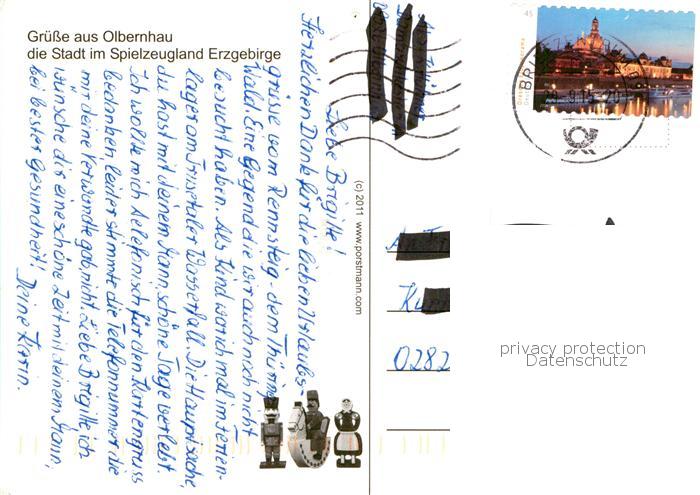 Grüße aus Olbernhau
die Stadt im Spielzeugland Erzgebirge
Liebe Brigitte!
Herzlichen Dank für die lieben Urlaubs-
grüsse vom Rennsteig - dem Thüringer
Wald. Eine Gegend die wir auch noch nicht
besucht haben. Als Kind war ich mal im Ferien-
lager am Trusetaler Wasserfall. Die Hauptsache,
du hast mit deinem Mann, schöne Tage verlebt.
Ich wollte mich telefonisch für den Kartengruss
bedanken, leider stimmte die Telefonnummer die
mir deine Verwandte gab, nicht. Liebe Brigitte ich
wünsche dir eine schöne Zeit mit deinem Mann,
bei bester Gesundheit,
Deine Karin.
(c) 2011 www.porstmann.com
45
BR
0282
privacy protection
Datenschutz